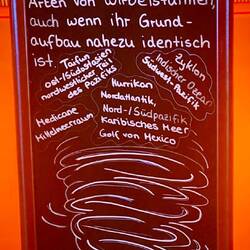 Arten von Wirbelstürmen,
auch wenn ihr Grund-
aufbau nahezu identisch
ist.
Taifun
ost-/Südostasien
nordwestlicher Teil
des Pazifiks
Zyklon
Indischer Ozean
Südwest-Pazifik
Hurrikan
Nordatlantik,
Nord-/Südpazifik
Karibisches Meer
Golf von Mexico
Medicane
Mittelmeerraum